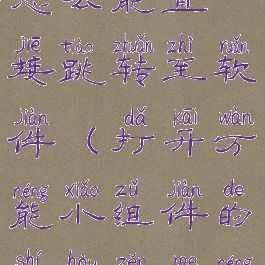 怎么能直
jiē tiào zhuǎn zhì ruǎn
接跳转至软
jiàn dǎ kāi wàn
件（打开万
néng xiǎo zǔ jiàn de
能小组件的
shí hòu zěn me néng